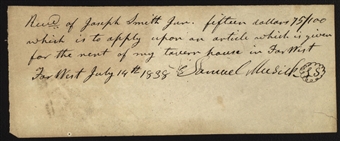 Recd of Joseph Smith Jun. fifteen dollars 75/100
which is to apply upon an article which is given
for the rent of my tavern house in Far West
Far West July 14th 1838 Samuel Musick LS